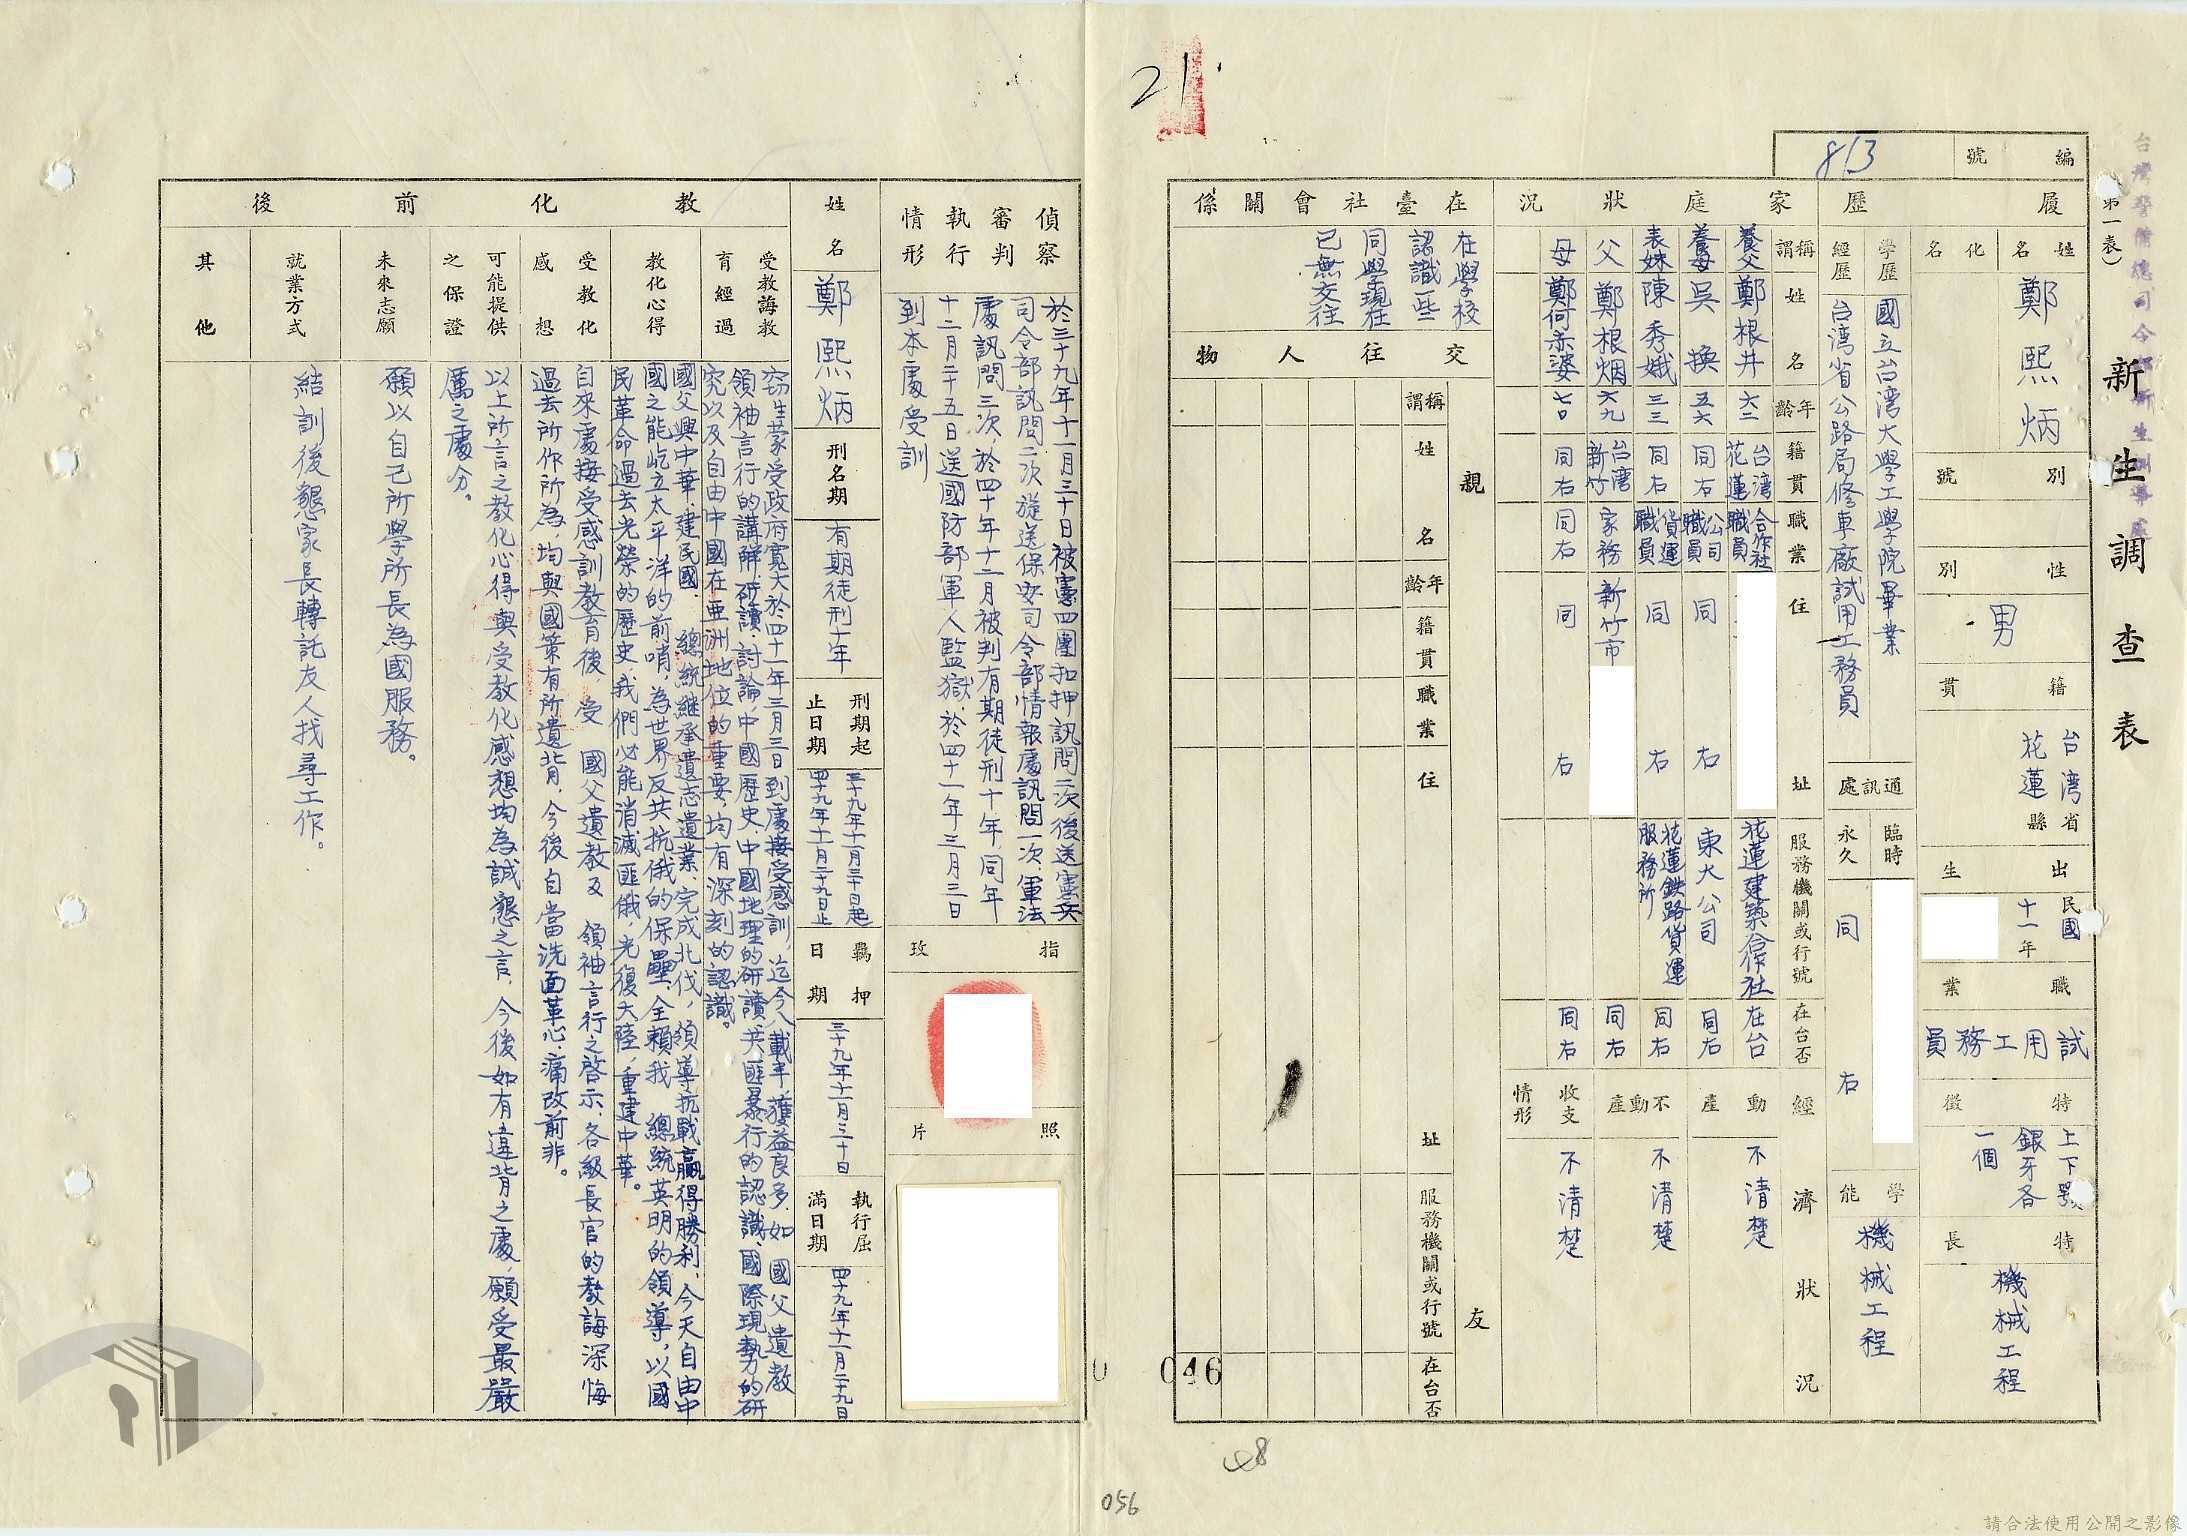 台灣警備總司令部新生訓導處
新生調查表
(第一表)
編號
813
履歷
姓名
鄭熙炳
化名
別號
性別
男
籍貫
台湾省
花蓮縣
出生
民國
十一年
職業
試用工務員
特徵
上下顎
銀牙各
一個
特長
機械工程
學歷
國立台湾大學工學院畢業
經歷
台湾省公路局修車廠試用工務員
通訊處
臨時
永久
同右
學能
機械工程
家庭狀況
稱謂
姓名
年齡
籍貫
職業
住址
服務機關或行號
在台否
經濟狀況
養父
鄭根井
六二
台湾
花蓮
合作社
職員
花蓮建築合作社
在台
養母
吳換
五六
同右
公司
職員
同右
東大公司
同右
表妹
陳秀娥
三三
同右
貨運
職員
同右
花蓮鉄路貨運
服務所
同右
父
鄭根烟
六九
台湾
新竹
家務
新竹市
同右
母
鄭何赤婆
七〇
同右
同右
同右
同右
動產
不清楚
不動產
不清楚
收支
情形
不清楚
在臺社會關係
在學校
認識一些
同學現在
已無交往
交往人物
親友
稱謂
姓名
年齡
籍貫
職業
住址
服務機關或行號
在台否
偵察
審判
執行
情形
於三十九年十一月三十日被憲四團扣押訊問二次後送憲兵
司令部訊問二次旋送保安司令部情報處訊問一次、軍法
處訊問三次、於四十年十二月被判有期徒刑十年、同年
十二月二十五日送國防部軍人監獄、於四十一年三月三日
到本處受訓
指玫
照片
姓名
鄭熙炳
刑名期
有期徒刑十年
刑期起
止日期
三十九年十一月三十日起
四十九年十一月二十九日止
羈押
日期
三十九年十一月三十日
執行屆
滿日期
四十九年十一月二十九日
教化前後
受教誨教
育經過
竊生蒙受政府寬大於四十一年三月三日到處接受感訓，迄今八載半獲益良多、如 國父遺教
領袖言行的講解、研讀、討論、中國歷史、中國地理的研讀、共匪暴行的認識、國際現勢的研
究以及自由中國在亞洲地位的重要，均有深刻的認識。
教化心得
國父興中華、建民國、 總統繼承遺志遺業、完成北伐，領導抗戰贏得勝利、今天自由中
國之能屹立太平洋的前哨、為世界反共抗俄的保壘、全賴我 總統英明的領導，以國
民革命過去光榮的歷史、我們必能消滅匪俄，光復大陸，重建中華。
受教化
感想
自來處接受感訓教育後 受 國父遺教及 領袖言行之啓示、各級長官的教誨深悔
過去所作所為，均與國策有所遺背，今後自當洗面革心、痛改前非。
可能提供
之保證
以上所言之教化心得與受教化感想均為誠懇之言，今後如有違背之處，願受最嚴
厲之處分。
未來志願
願以自己所學所長為國服務。
就業方式
結訓後懇家長轉託友人找尋工作。
其他
21
046
056
請合法使用公開之影像